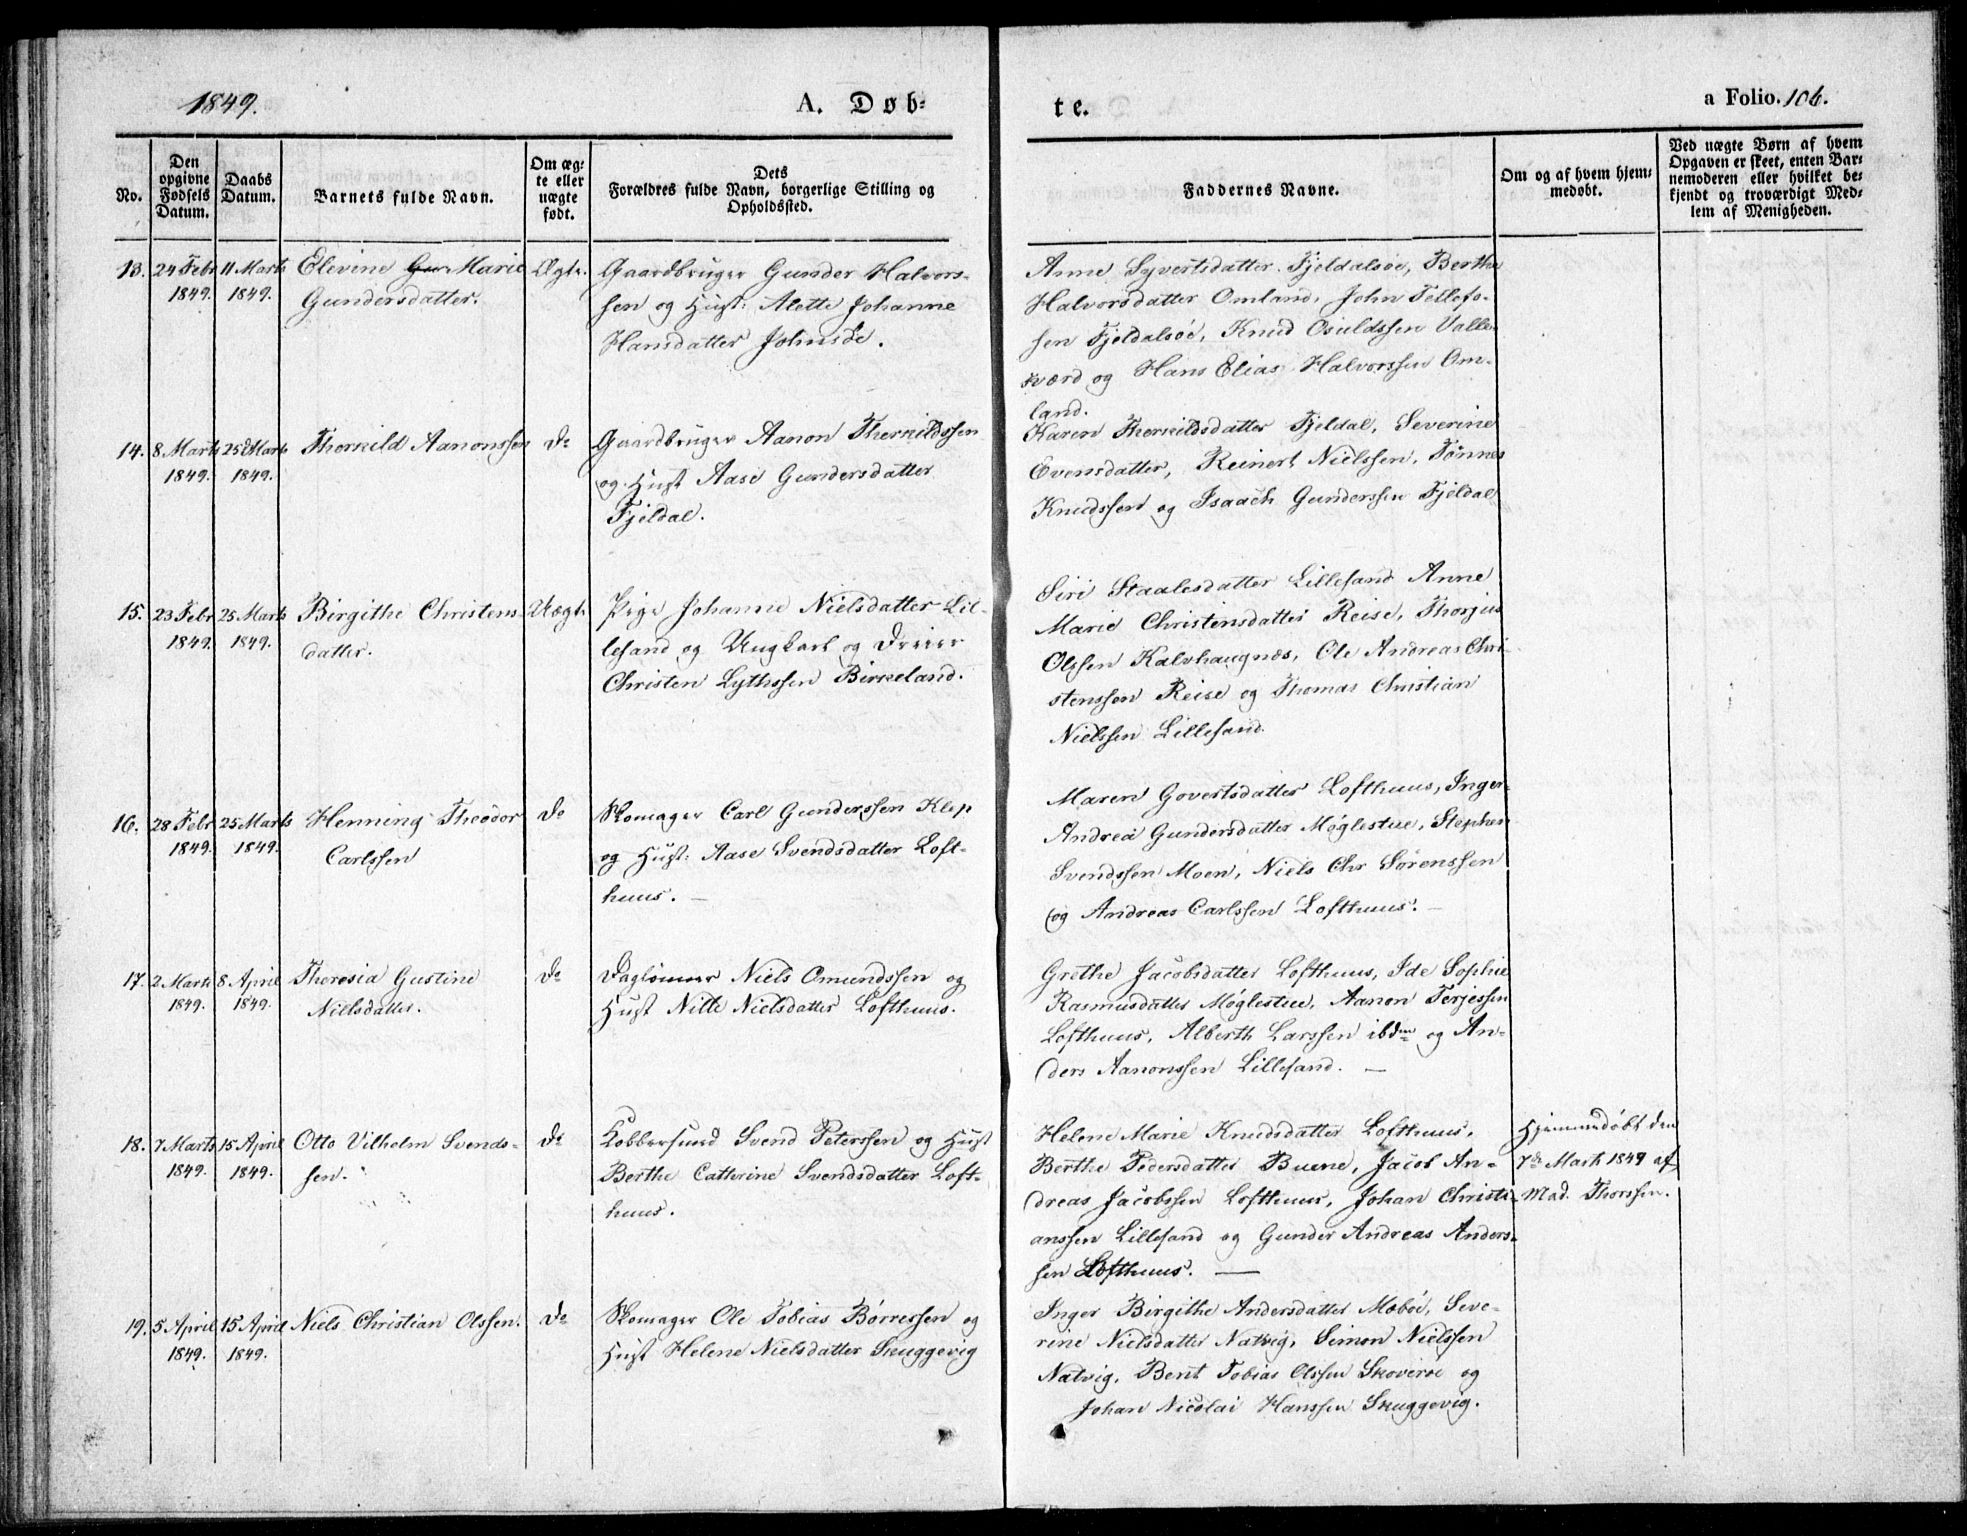 1849.
A. Døb-
te.
a Folio. 106.
No.
Den
opgivne
Fødsels
Datum.
Daabs
Datum.
Barnets fulde Navn.
Om æg-
te eller
uægte
født.
Dets
Forældres fulde Navn, borgerlige Stilling og
Opholdssted.
Faddernes Navne.
Om og af hvem hjem-
medøbt.
Ved uægte Børn af hvem
Opgaven er skeet, enten Bar-
nemoderen eller hvilket be-
kjendt og troværdigt Med-
lem af Menigheden.
13.
24 Febr
1849.
11 Marts
1849.
Elevine Gu Marie
Gundersdatter.
Ægte.
Gaardbruger Gunder Halvors-
sen og Hust: Alette Johanne
Hansdatter
Anne Syvertsdatter Fjeldalsøe, Berthe
Halvorsdatter Omland, John Tellefs-
sen Fjeldalsøe, Knud Osuldssen Valle-
sværd og Hans Elias Halvorssen Om-
land.
14.
8 Marts
1849.
25de Marts
1849.
Thorkild Aanonssen
Do
Gaardbruger Aanon Therkildssen
og Hust Aase Gundersdatter
Fjeldal.
Karen Therkildsdatter Fjeldal, Severine
Evensdatter, Reinert Nielssen, Tønnes
Knudssen og Isaach Gunderssen Fjeldal
15.
23 Febr
1849.
25 Marts
1849.
Birgithe Christens-
datter.
Uægte
Pige Johanne Nielsdatter Lil-
lesand og Ungkarl og Dreier
Christen Lythssen Birkeland.
Siri Staalesdatter Lillesand Anne
Marie Christensdatter Reise, Thorjus
Olssen Kalvhaugnæs, Ole Andreas Chri-
stenssen Reise og Thomas Christian
Nielssen Lillesand.
16.
28 Febr
1849.
25 Marts
1849.
Henning Theodor
Carlssen
Do
Skomager Carl Gunderssen Klep
og Hust: Aase Svendsdatter Loft-
huus. —
Maren Govertsdatter Lofthuus, Inger
Andrea Gundersdatter Møglestue, Stephen
Svendssen Moen, Niels Chr Sørenssen
og Andreas Carlssen Lofthuus. —
17.
2 Marts
1849.
8 April
1849.
Theresia Gustine
Nielsdatter.
Do
Daglønner Niels Omundssen og
Hust Nille Nielsdatter Lofthuus.
Grethe Jacobsdatter Lofthuus, Ide Sophie
Rasmusdatter Møglestue, Aanon Terjessen
Lofthuus, Alberth Larssen ibdm og An-
ders Aanonssen Lillesand. —
18.
7 Marts
1849.
15 April
1849.
Otto Vilhelm Svends-
sen.
Do
Kobbersmed Svend Peterssen og Hust
Berthe Cathrine Svendsdatter Loft-
huus.
Helene Marie Knudsdatter Lofthuus,
Berthe Pedersdatter Buene, Jacob An-
dreas Jacobssen Lofthuus, Johan Christi-
anssen Lillesand og Gunder Andreas Anders-
sen Lofthuus. —
Hjemmedøbt den
7de Marts 1849 af
Mad. Thorssen.
19.
5 April
1849.
15 April
1849.
Niels Christian Olssen.
Do
Skomager Ole Tobias Børressen og
Hust Helene Nielsdatter Skuggevig
Inger Birgithe Andersdatter Mæbøe, Seve-
rine Nielsdatter Natvig, Simon Nielssen
Natvig, Bent Tobias Olssen Skoverøe og
Johan Nicolai Hanssen Skuggevig.